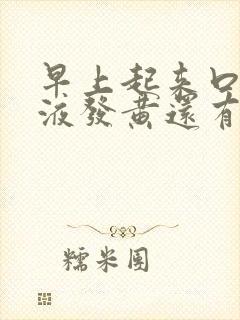 早上起来口
液發黄還有
糯米团